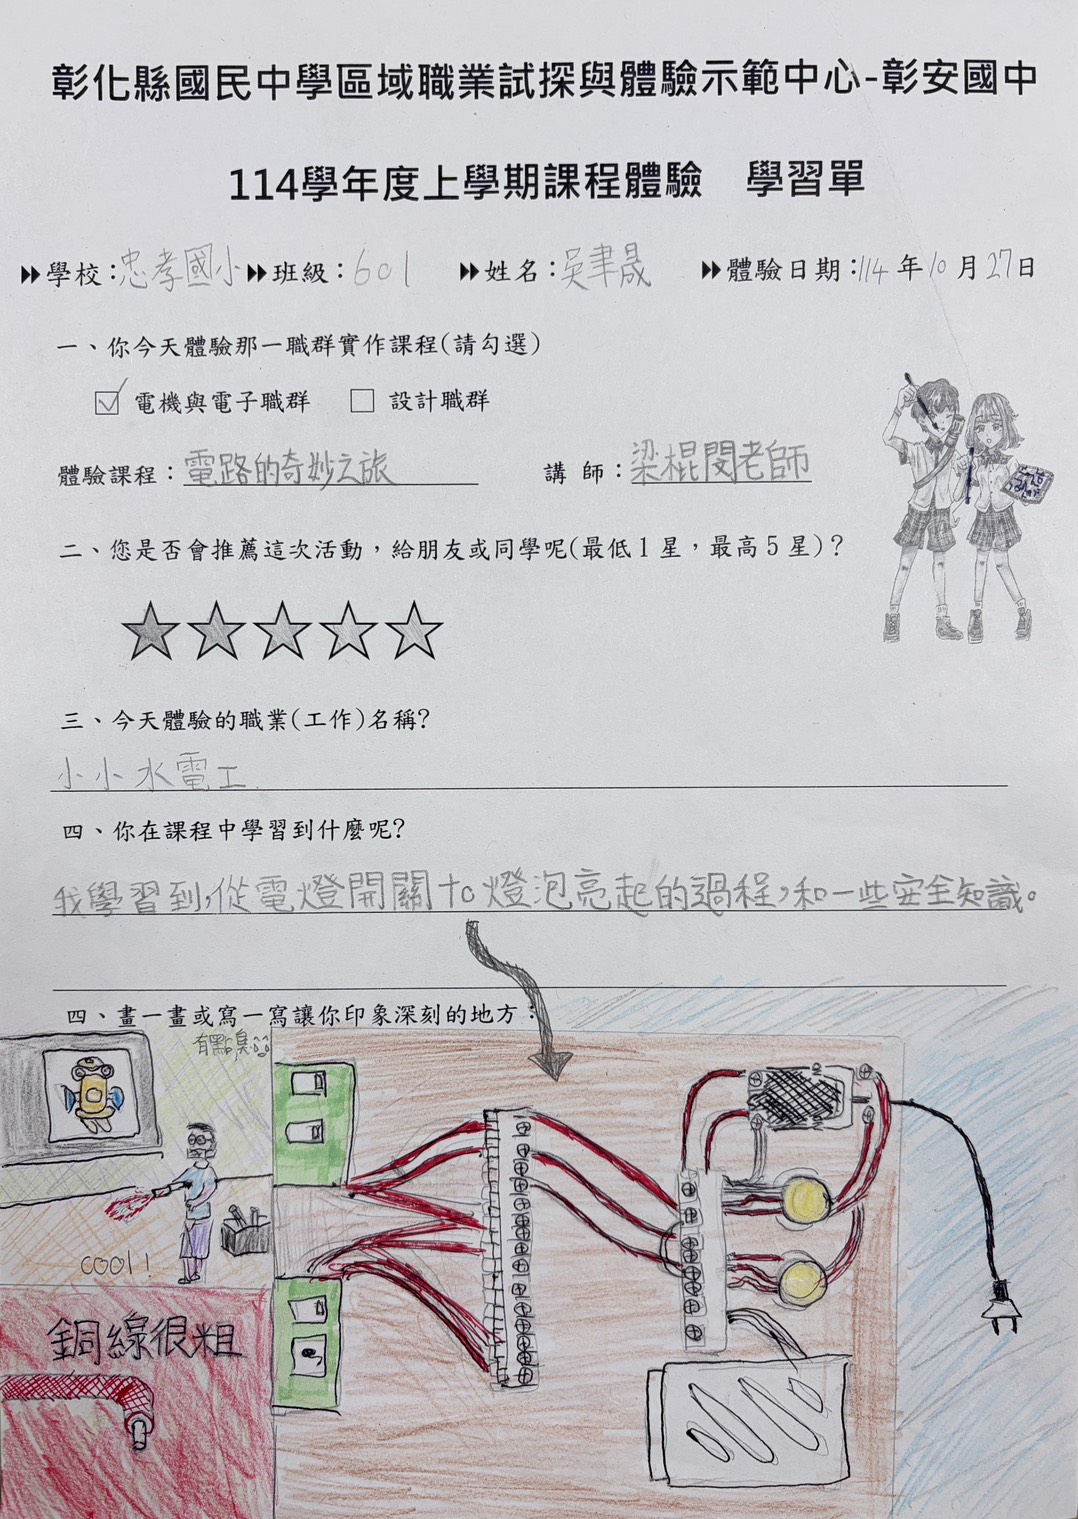 彰化縣國民中學區域職業試探與體驗示範中心-彰安國中
114學年度上學期課程體驗 學習單
學校:忠孝國小 班級:601 姓名:吳聿晟 體驗日期:114年10月27日
一、你今天體驗那一職群實作課程(請勾選)
☑ 電機與電子職群 □ 設計職群
體驗課程:電路的奇妙之旅 講 師:梁棍閔老師
二、您是否會推薦這次活動，給朋友或同學呢(最低1星，最高5星)？
三、今天體驗的職業(工作)名稱?
小小水電工
四、你在課程中學習到什麼呢?
我學習到,從電燈開關to燈泡亮起的過程,和一些安全知識。
四、畫一畫或寫一寫讓你印象深刻的地方：
有點臭
cool!
銅線很粗